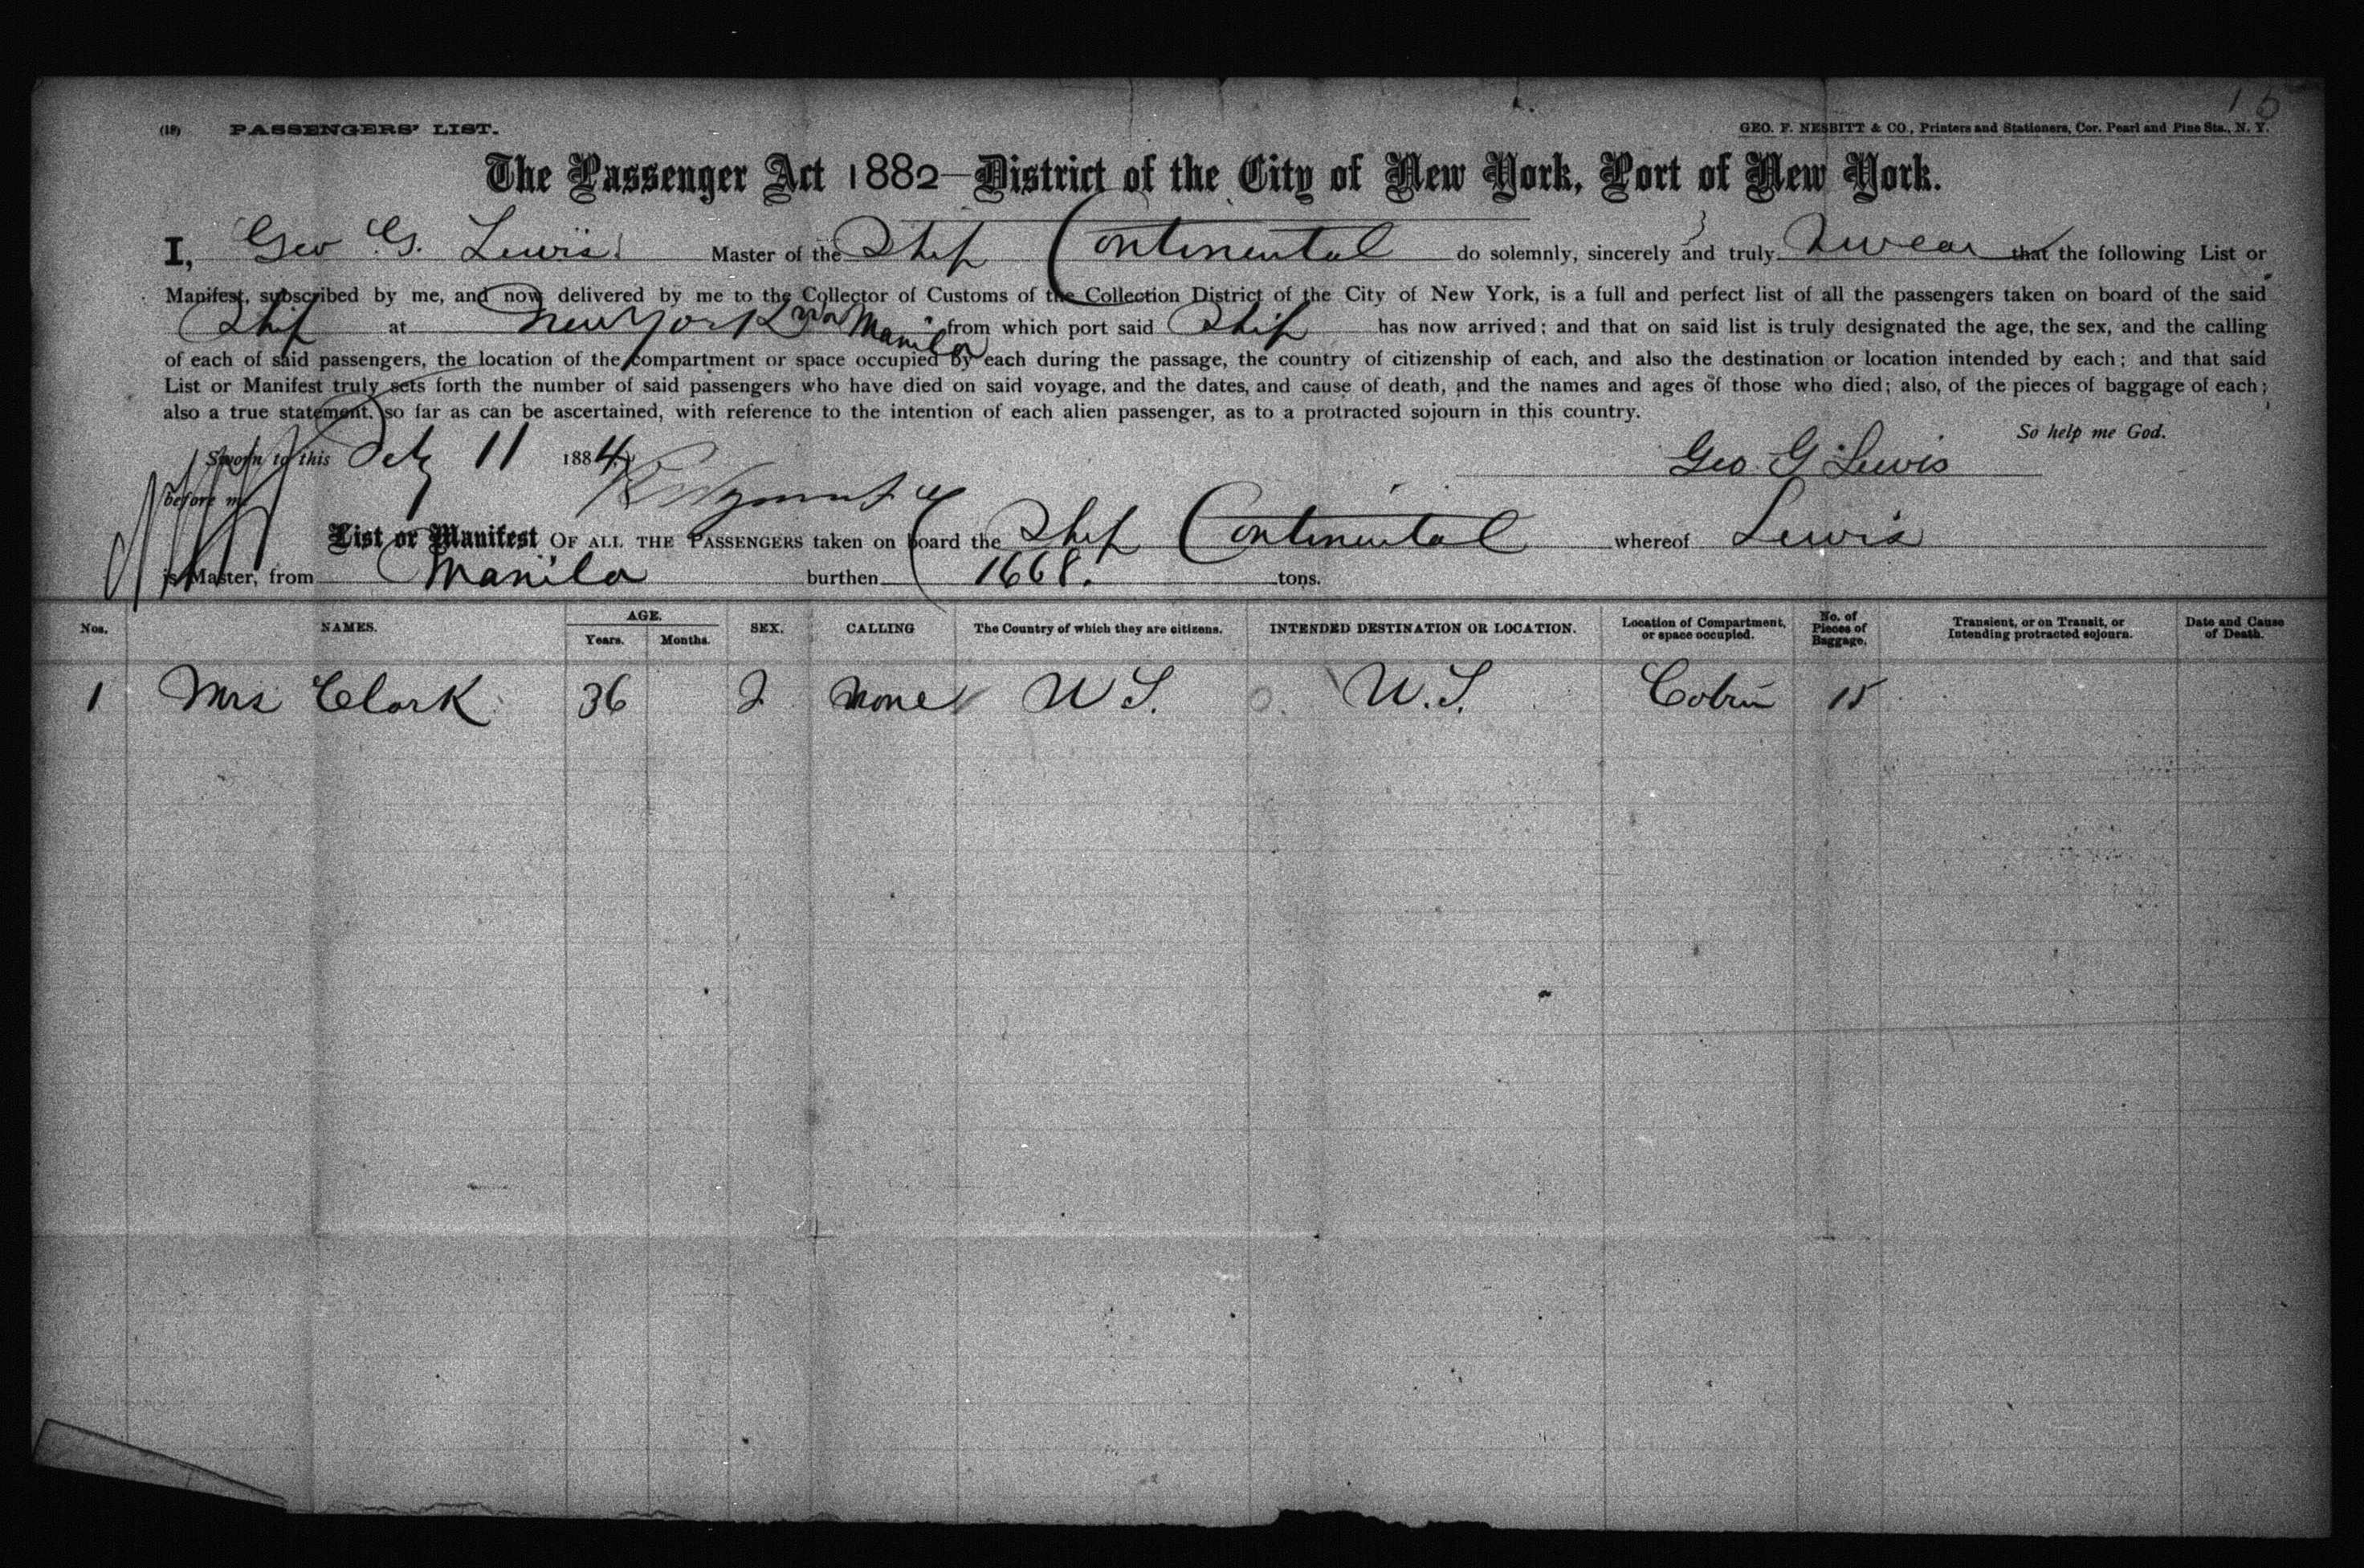 16
(18) PASSENGERS' LIST. GEO. F. NESBITT & CO., Printers and Stationers, Cor. Pearl and Pine Sts., N. Y.
The Passenger Act 1882—District of the City of New York, Port of New York.
I, Geo G. Lewis Master of the Ship Continental do solemnly, sincerely and truly Swear that the following List or
Manifest, subscribed by me, and now delivered by me to the Collector of Customs of the Collection District of the City of New York, is a full and perfect list of all the passengers taken on board of the said
Ship at New York via Manila from which port said Ship has now arrived; and that on said list is truly designated the age, the sex, and the calling
of each of said passengers, the location of the compartment or space occupied by each during the passage, the country of citizenship of each, and also the destination or location intended by each; and that said
List or Manifest truly sets forth the number of said passengers who have died on said voyage, and the dates, and cause of death, and the names and ages of those who died; also, of the pieces of baggage of each;
also a true statement, so far as can be ascertained, with reference to the intention of each alien passenger, as to a protracted sojourn in this country.
So help me God.
Sworn to this 11 1884 Geo G Lewis
before me
List or Manifest OF ALL THE PASSENGERS taken on board the Ship Continental whereof Lewis
is Master, from Manila burthen 1668. tons.
Nos. NAMES. AGE. Years. Months. SEX. CALLING The Country of which they are citizens. INTENDED DESTINATION OR LOCATION. Location of Compartment, or space occupied. No. of Pieces of Baggage. Transient, or on Transit, or Intending protracted sojourn. Date and Cause of Death.
1 Mrs Clark 36 None U S. U.S. Cabin 15